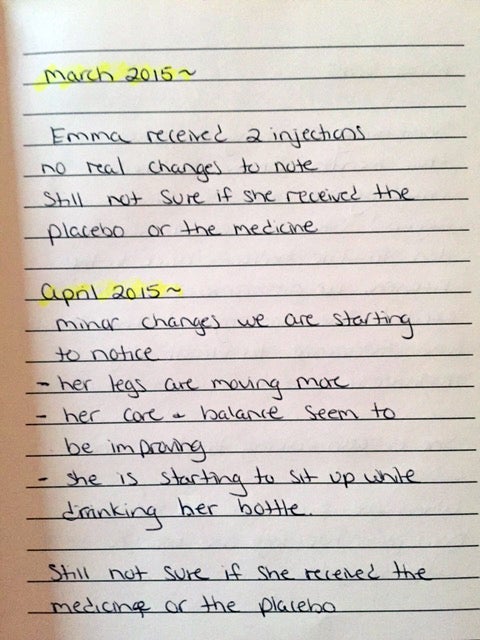 March 2015~
Emma received 2 injections
no real changes to note
Still not sure if she received the
placebo or the medicine
April 2015~
minor changes we are starting
to notice
- her legs are moving more
- her core + balance seem to
be improving
- she is starting to sit up while
drinking her bottle.
Still not sure if she received the
medicine or the placebo